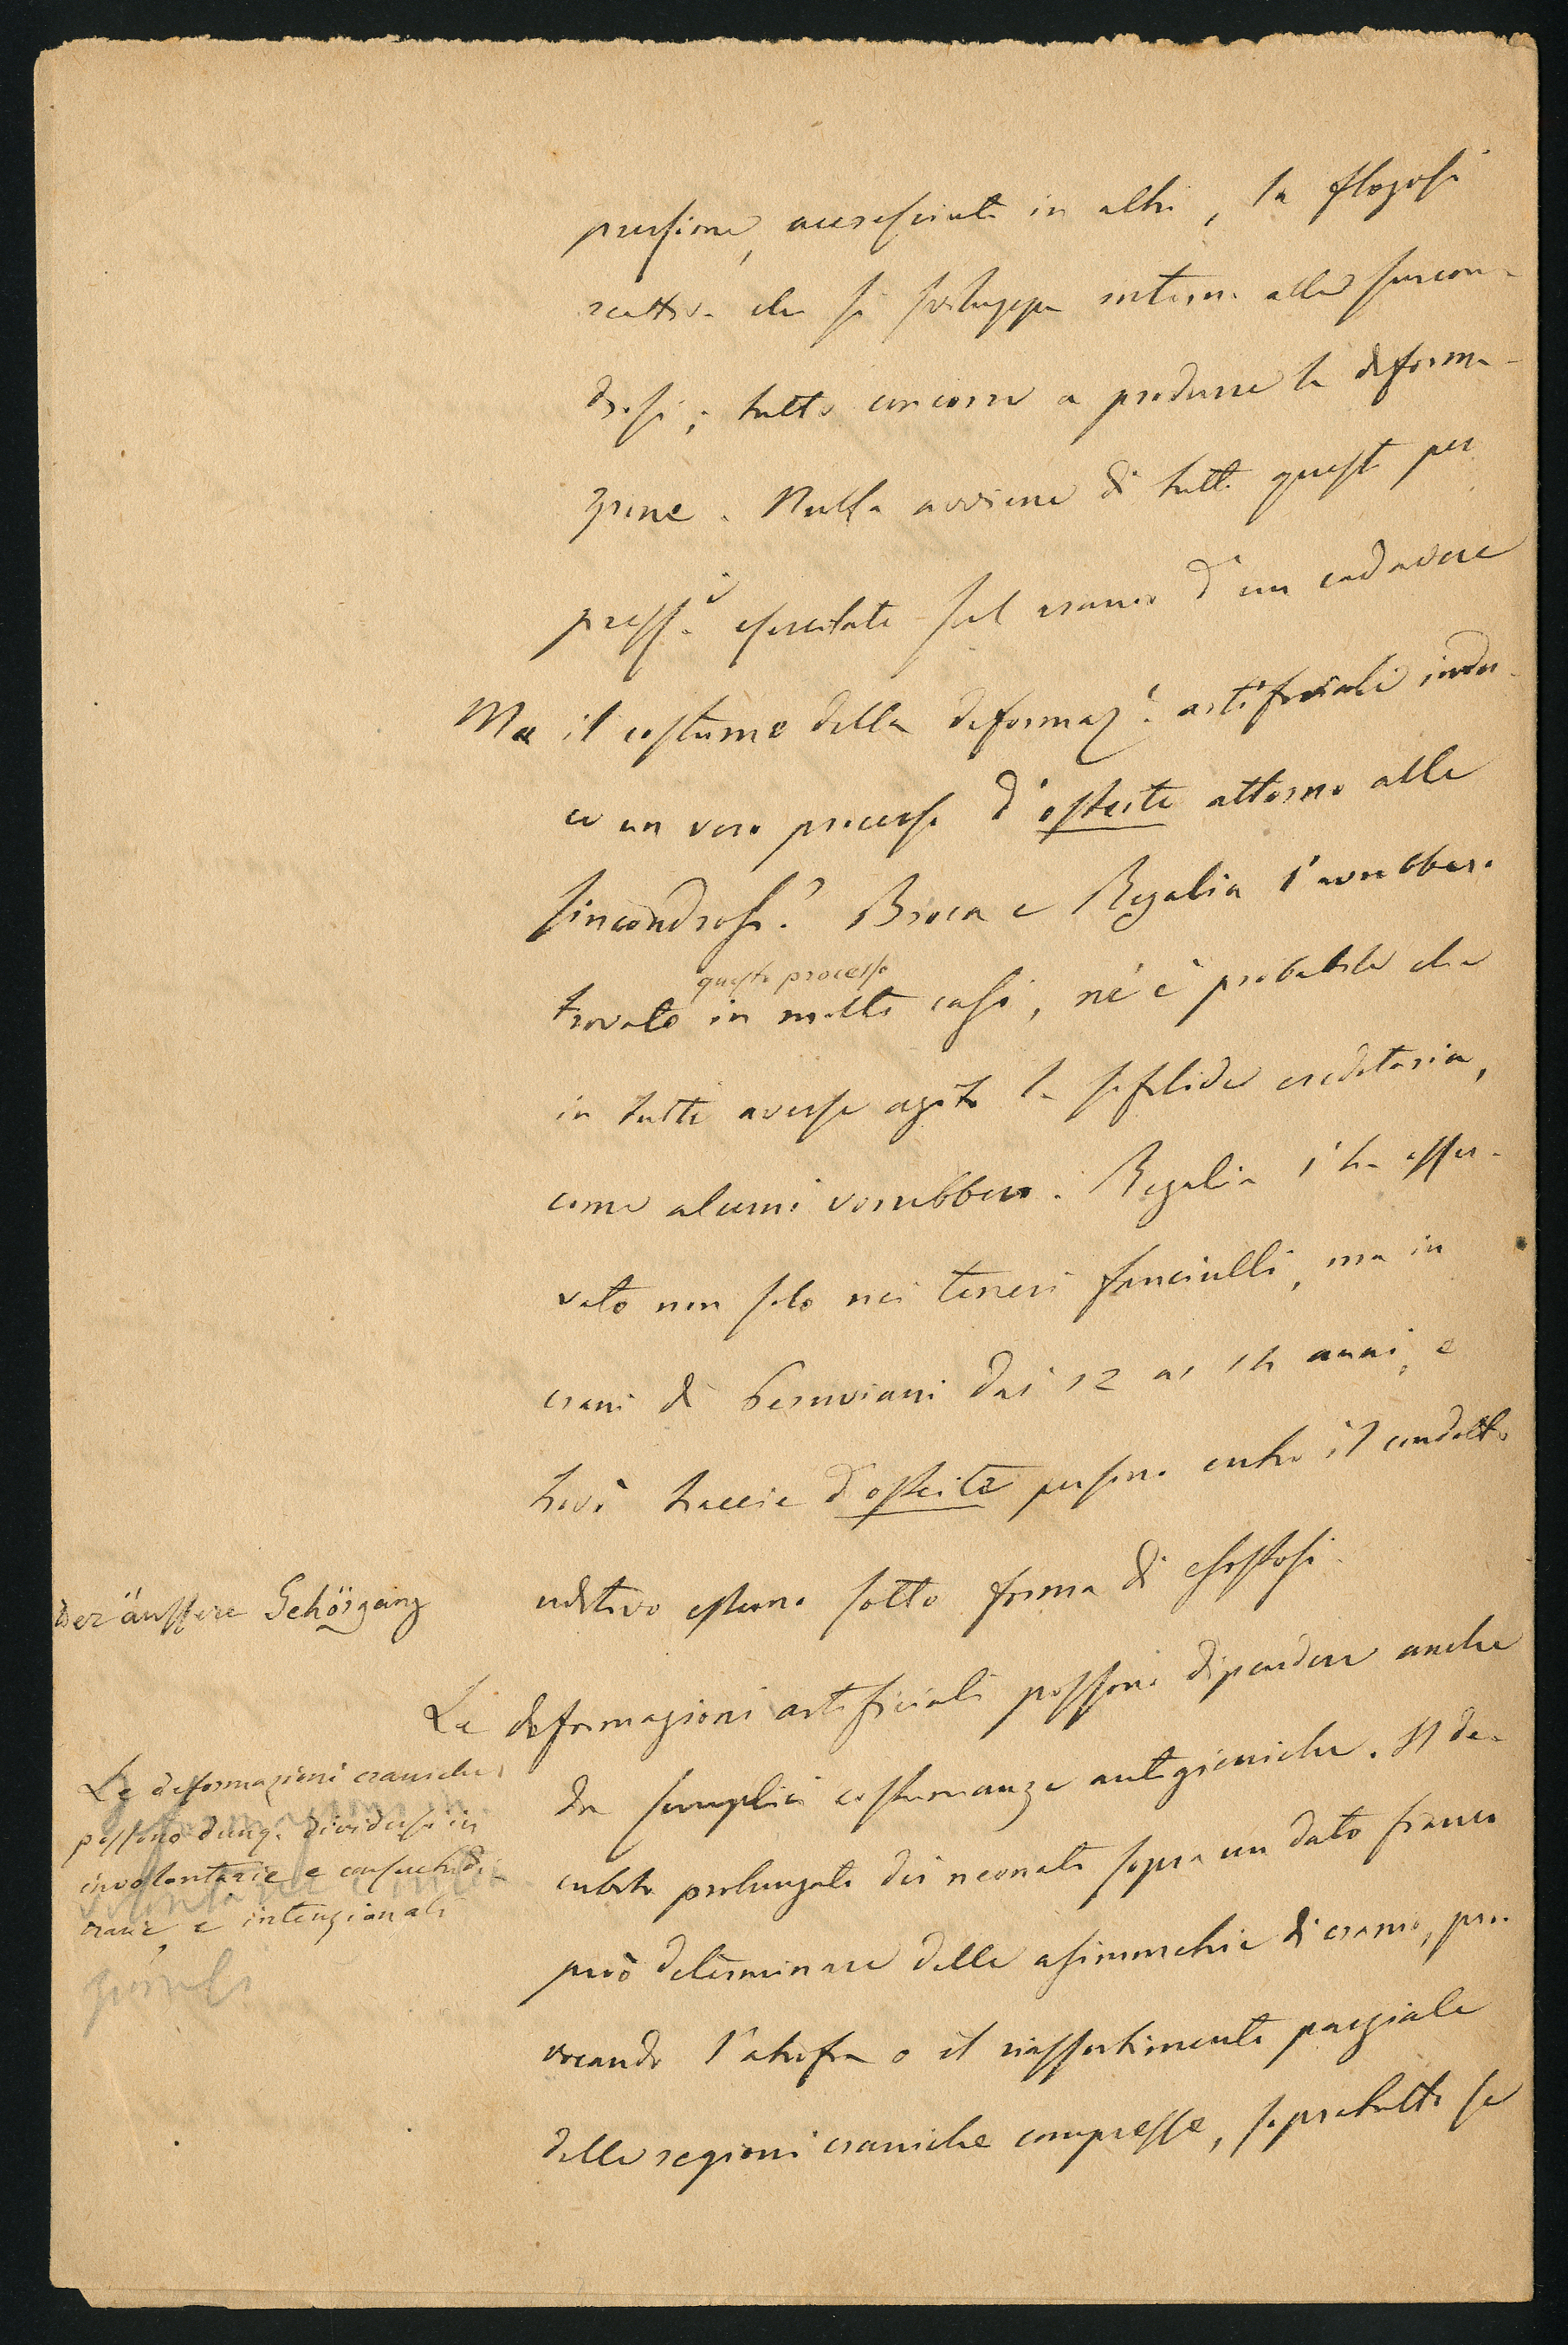 pressione, accresciuta in altri, la flogosi
reattiva che si sviluppa intorno alle sincon-
drosi; tutto concorre a produrre la deforma-
zione. Nulla avviene di tutto questo per
press.i esercitate sul cranio d'un cadavere
Ma il costume della deformaz.i artificiale indu-
ce un vero processo d'osteite attorno alle
sincondrosi? Broca e Regalia l'avrebbero
questo processo
trovato in molti casi, nè è probabile che
in tutti avesse agito la sifilide ereditaria,
come alcuni vorrebbero. Regalia l'ha osser-
vato non solo nei teneri fanciulli, ma in
crani di Peruviani dai 12 ai 14 anni, e
trovò traccie d'osteite persino entro il condotto
uditivo esterno sotto forma di esostosi.
der äussere Gehörgang
Le deformazioni artificiali possono dipendere anche
da semplici costumanze antigieniche. Il de-
cubito prolungato dei neonati sopra un dato fianco
può determinare delle asimmetrie di cranio, pro-
vocando l'atrofia o il riassorbimento parziale
delle regioni craniche compresse, sopratutto se
Le deformazioni craniche
possono dunq. dividersi in
involontarie e consuetudi-
narie, e intenzionali